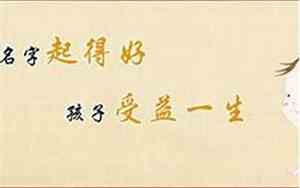 名字起得好
孩子受益一生